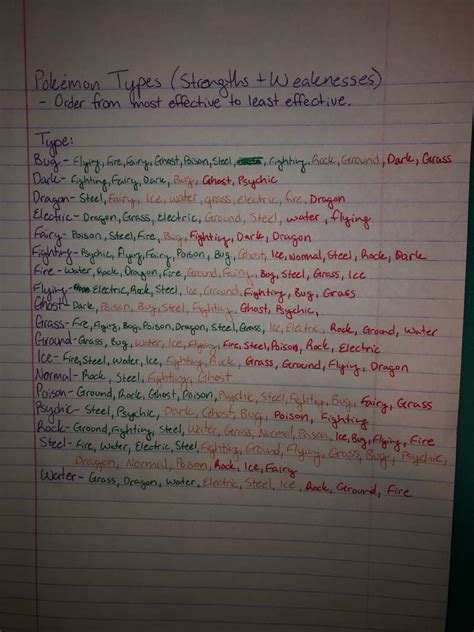 Pokémon Types (Strengths + Weaknesses)
- Order from most effective to least effective.
Type:
Bug- Flying, Fire, Fairy, Ghost, Poison, Steel, Fighting, Rock, Ground, Dark, Grass
Dark- Fighting, Fairy, Dark, Bug, Ghost, Psychic
Dragon- Steel, Fairy, Ice, water, grass, electric, fire, Dragon
Electric- Dragon, Grass, Electric, Ground, Steel, water, flying
Fairy- Poison, Steel, Fire, Bug, Fighting, Dark, Dragon
Fighting- Psychic, Flying, Fairy, Poison, Bug, Ghost, Ice, Normal, Steel, Rock, Dark
Fire- Water, Rock, Dragon, Fire, Ground, Fairy, Bug, Steel, Grass, Ice
Flying- Electric, Rock, Steel, Ice, Ground, Fighting, Bug, Grass
Ghost- Dark, Poison, Bug, Steel, Fighting, Ghost, Psychic,
Grass- Fire, Flying, Bug, Poison, Dragon, Steel, Grass, Ice, Electric, Rock, Ground, Water
Ground- Grass, Bug, Water, Ice, Flying, Fire, Steel, Poison, Rock, Electric
Ice- Fire, Steel, Water, Ice, Fighting, Rock, Grass, Ground, Flying, Dragon
Normal- Rock, Steel, Fighting, Ghost
Poison- Ground, Rock, Ghost, Poison, Psychic, Steel, Fighting, Bug, Fairy, Grass
Psychic- Steel, Psychic, Dark, Ghost, Bug, Poison, Fighting
Rock- Ground, Fighting, Steel, Water, Grass, Normal, Poison, Ice, Bug, Flying, Fire
Steel- Fire, Water, Electric, Steel, Fighting, Ground, Flying, Grass, Bug, Psychic,
Dragon, Normal, Poison, Rock, Ice, Fairy
Water- Grass, Dragon, Water, Electric, Steel, Ice, Rock, Ground, Fire